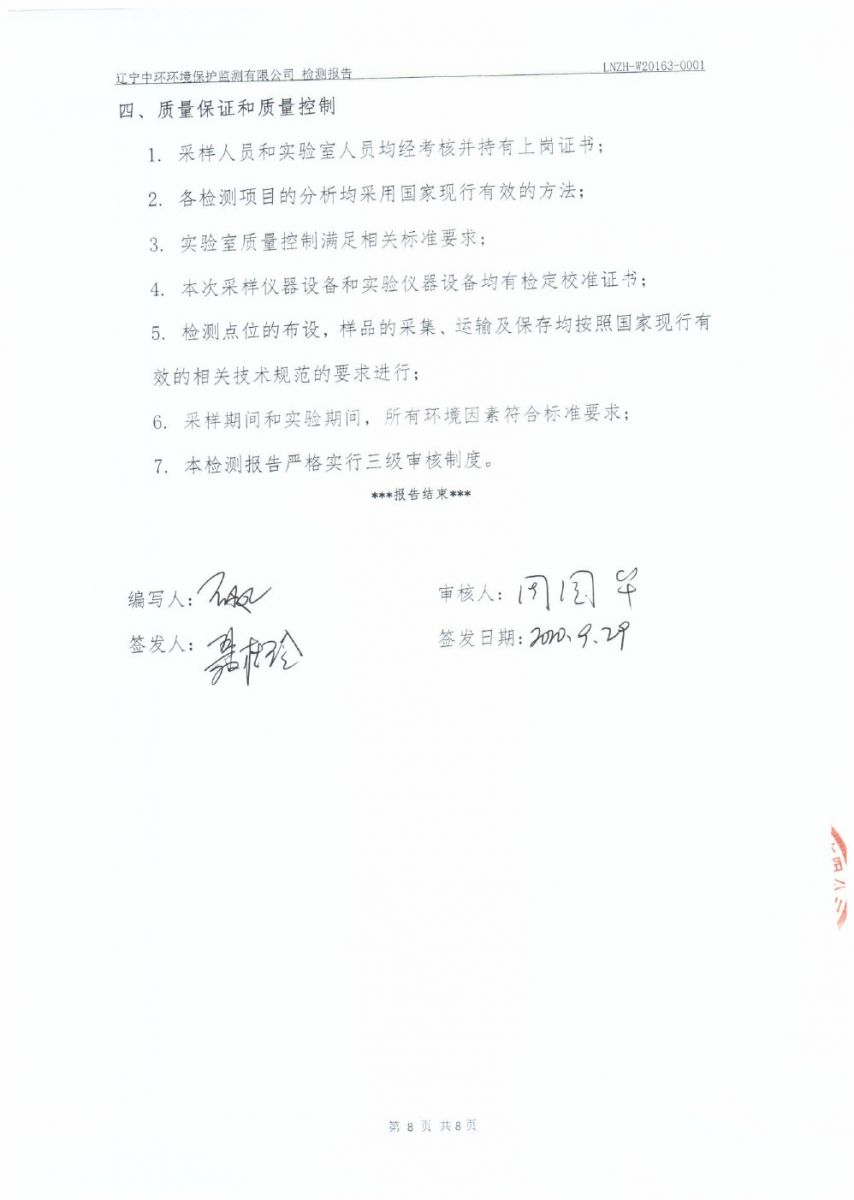 辽宁中环环境保护监测有限公司 检测报告 LNZH-W20163-0001
四、质量保证和质量控制
1. 采样人员和实验室人员均经考核并持有上岗证书；
2. 各检测项目的分析均采用国家现行有效的方法；
3. 实验室质量控制满足相关标准要求；
4. 本次采样仪器设备和实验仪器设备均有检定校准证书；
5. 检测点位的布设，样品的采集、运输及保存均按照国家现行有
效的相关技术规范的要求进行；
6. 采样期间和实验期间，所有环境因素符合标准要求；
7. 本检测报告严格实行三级审核制度。
***报告结束***
编写人： 审核人：周国华
签发人： 签发日期：2020.9.29
第 8 页 共 8 页